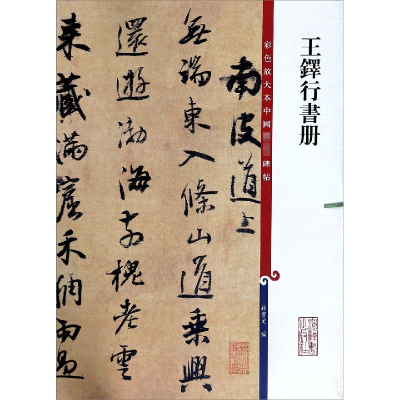 王鐸行書册
彩色放大本中國
碑帖
孫寶文 編
南皮道上
無端東入條山道乘興
還遊渤海
老雲
來藏滿
禾